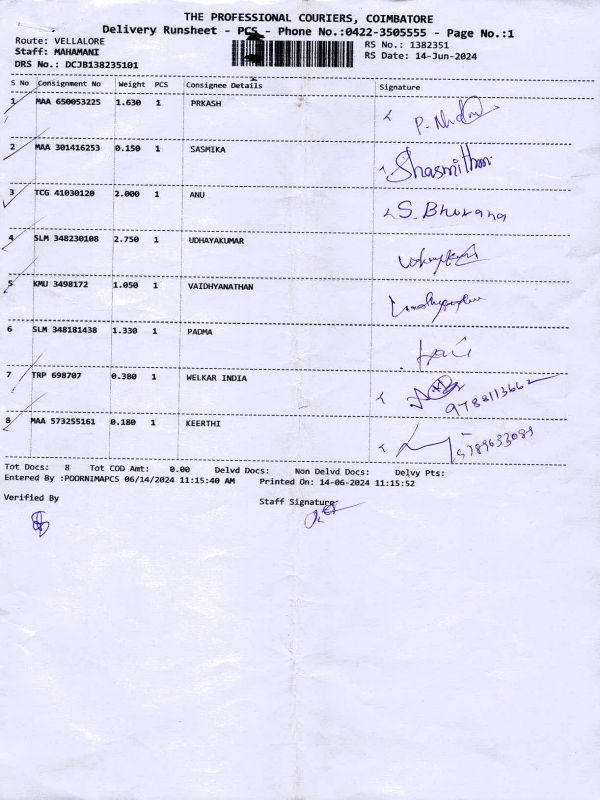 THE PROFESSIONAL COURIERS, COIMBATORE
Delivery Runsheet - PCS - Phone No.:0422-3505555 - Page No.:1
Route: VELLALORE
RS No.: 1382351
Staff: MAHAMANI
RS Date: 14-Jun-2024
DRS No.: DCJB138235101
S No Consignment No Weight PCS Consignee Details Signature
1 MAA 650053225 1.630 1 PRKASH
2 MAA 301416253 0.150 1 SASMIKA
3 TCG 41030120 2.000 1 ANU S. Bhuvana
4 SLM 348230108 2.750 1 UDHAYAKUMAR
5 KMU 3498172 1.050 1 VAIDHYANATHAN
6 SLM 348181438 1.330 1 PADMA
7 TRP 698707 0.380 1 WELKAR INDIA 9788113662
8 MAA 573255161 0.180 1 KEERTHI 9789633089
Tot Docs: 8 Tot COD Amt: 0.00 Delvd Docs: Non Delvd Docs: Delvy Pts:
Entered By :POORNIMAPCS 06/14/2024 11:15:40 AM Printed On: 14-06-2024 11:15:52
Verified By Staff Signature